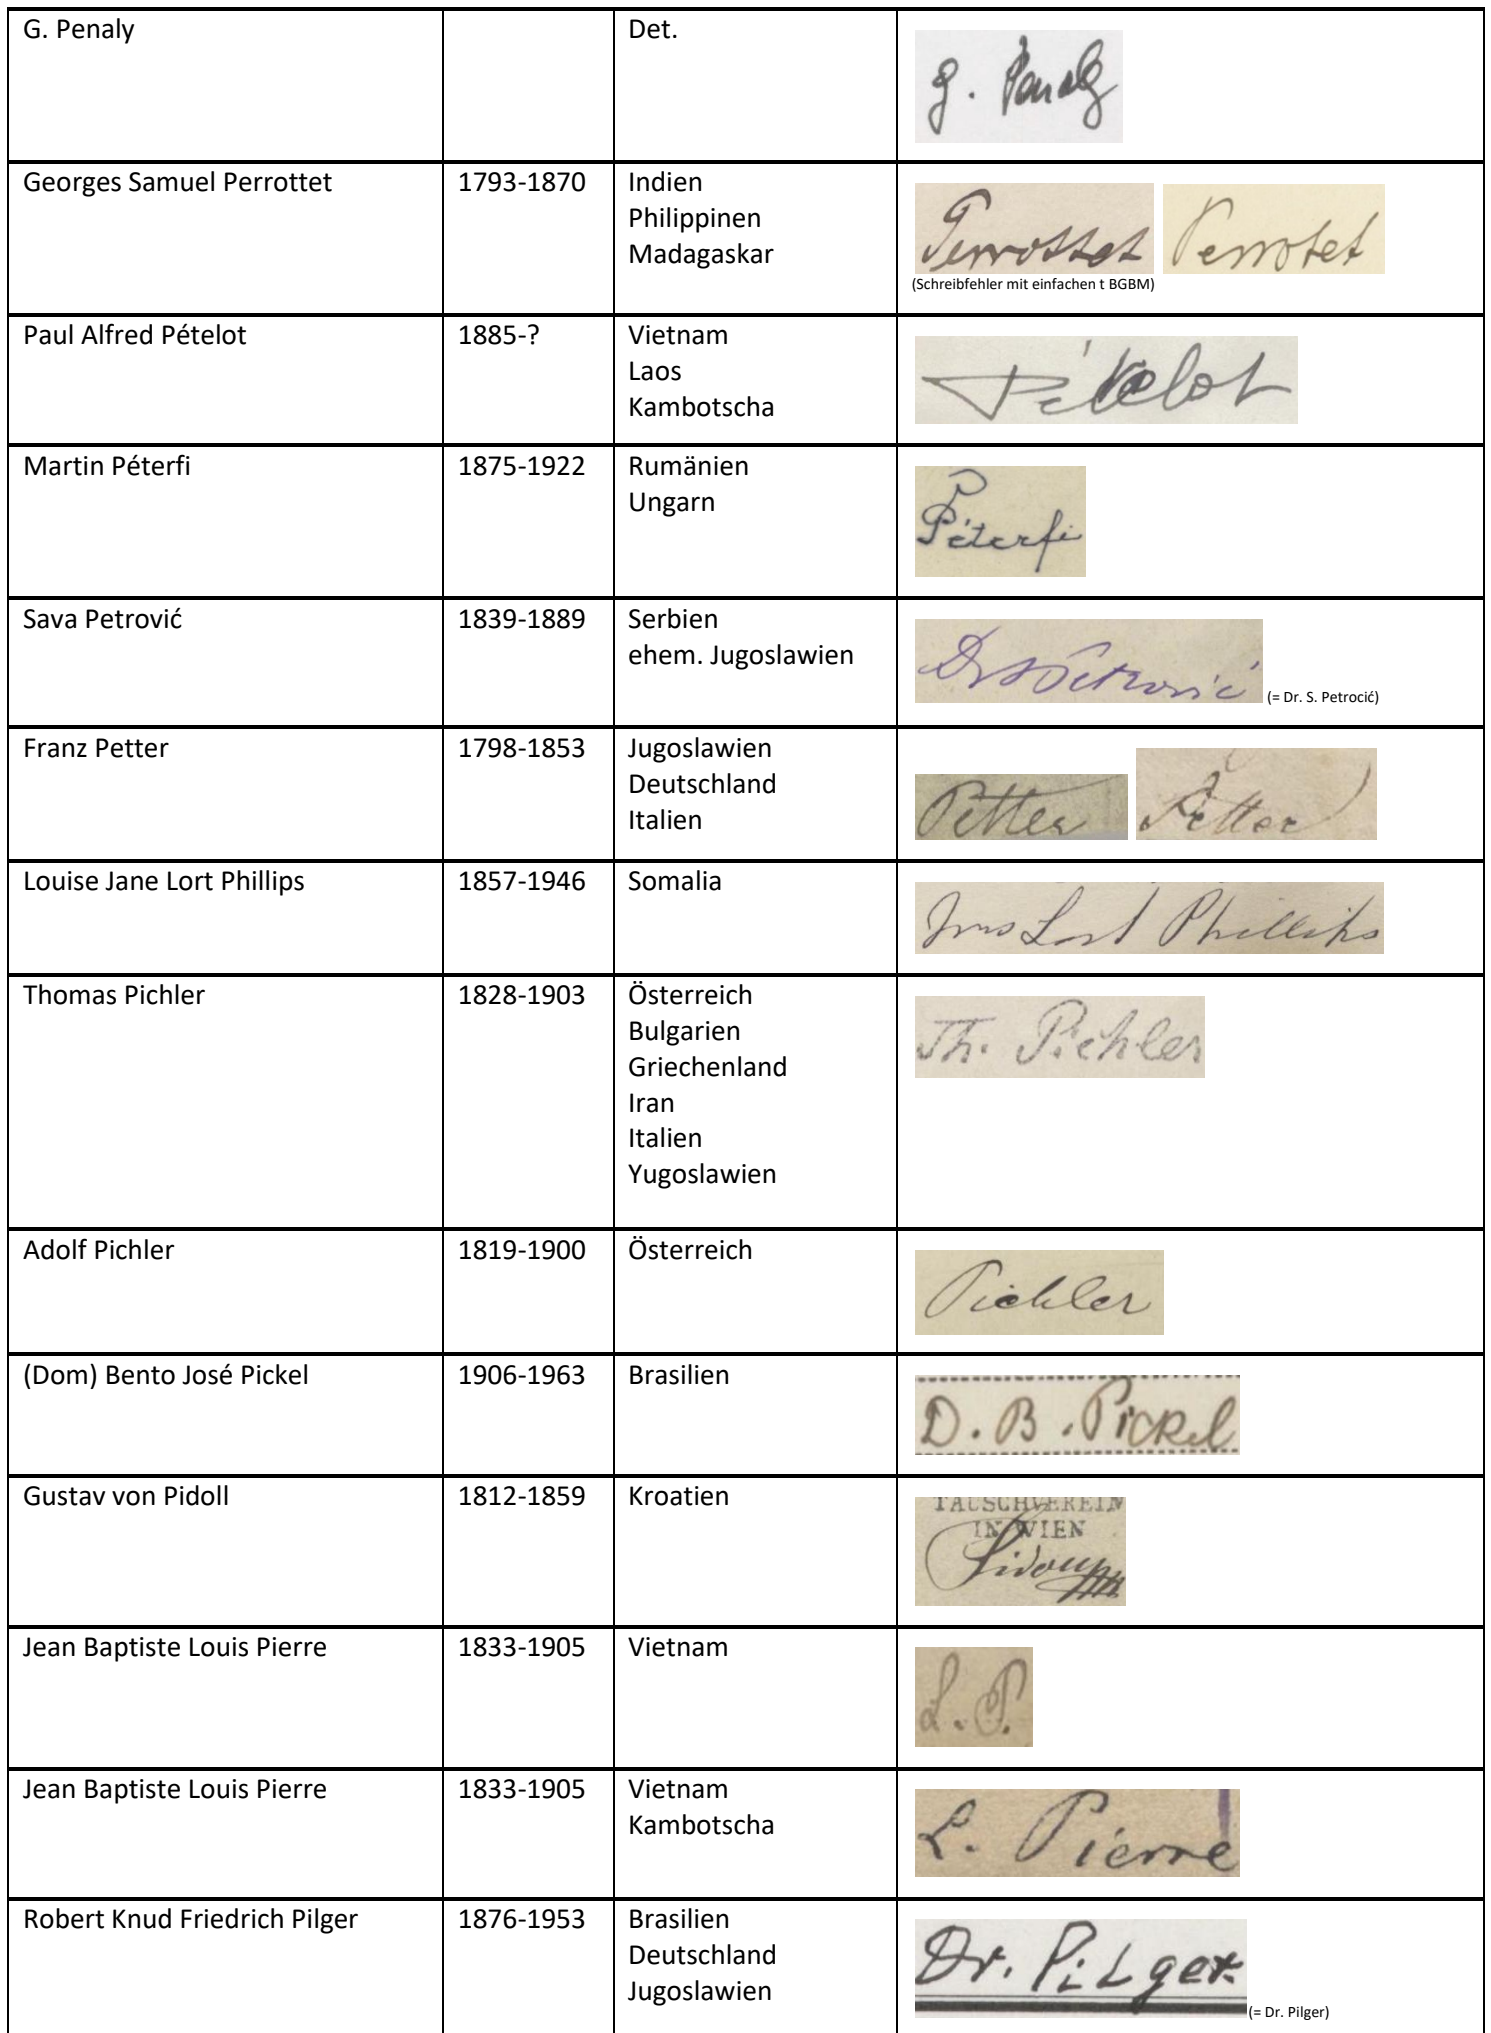 G. Penaly Det.
g. Penaly
Georges Samuel Perrottet 1793-1870 Indien
Philippinen
Madagaskar
Perrottet Perrotet
(Schreibfehler mit einfachen t BGBM)
Paul Alfred Pételot 1885-? Vietnam
Laos
Kambotscha
Pételot
Martin Péterfi 1875-1922 Rumänien
Ungarn
Péterfi
Sava Petrović 1839-1889 Serbien
ehem. Jugoslawien
Dr S Petrović (= Dr. S. Petrocić)
Franz Petter 1798-1853 Jugoslawien
Deutschland
Italien
Petter Petter
Louise Jane Lort Phillips 1857-1946 Somalia
Mrs Lort Phillips
Thomas Pichler 1828-1903 Österreich
Bulgarien
Griechenland
Iran
Italien
Yugoslawien
Th. Pichler
Adolf Pichler 1819-1900 Österreich
Pichler
(Dom) Bento José Pickel 1906-1963 Brasilien
D. B. Pickel
Gustav von Pidoll 1812-1859 Kroatien
TAUSCHVEREIN
IN WIEN
Jean Baptiste Louis Pierre 1833-1905 Vietnam
L. P.
Jean Baptiste Louis Pierre 1833-1905 Vietnam
Kambotscha
L. Pierre
Robert Knud Friedrich Pilger 1876-1953 Brasilien
Deutschland
Jugoslawien
Dr. Pilger (= Dr. Pilger)